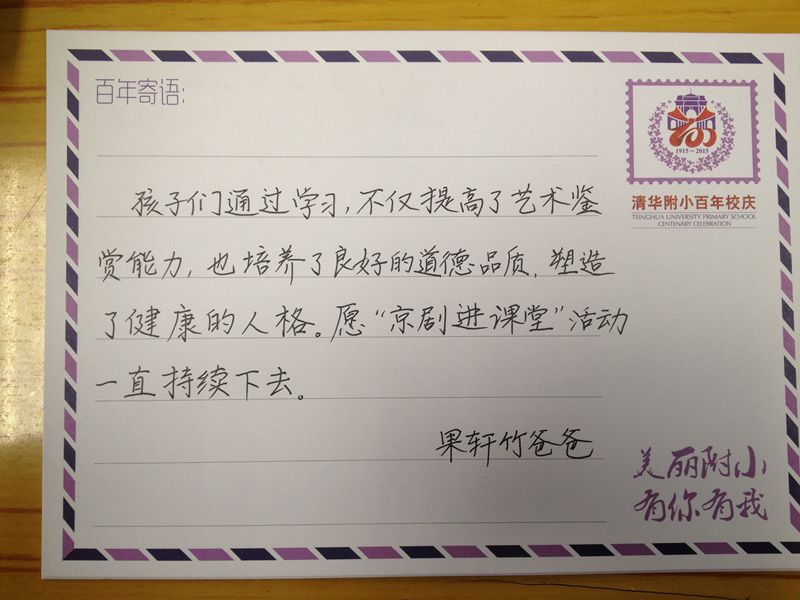 百年寄语:
孩子们通过学习,不仅提高了艺术鉴
赏能力,也培养了良好的道德品质,塑造
了健康的人格。愿“京剧进课堂”活动
一直持续下去。
果轩竹爸爸
1915-2015
清华附小百年校庆
TSINGHUA UNIVERSITY PRIMARY SCHOOL
CENTENARY CELEBRATION
美丽附小
有你有我